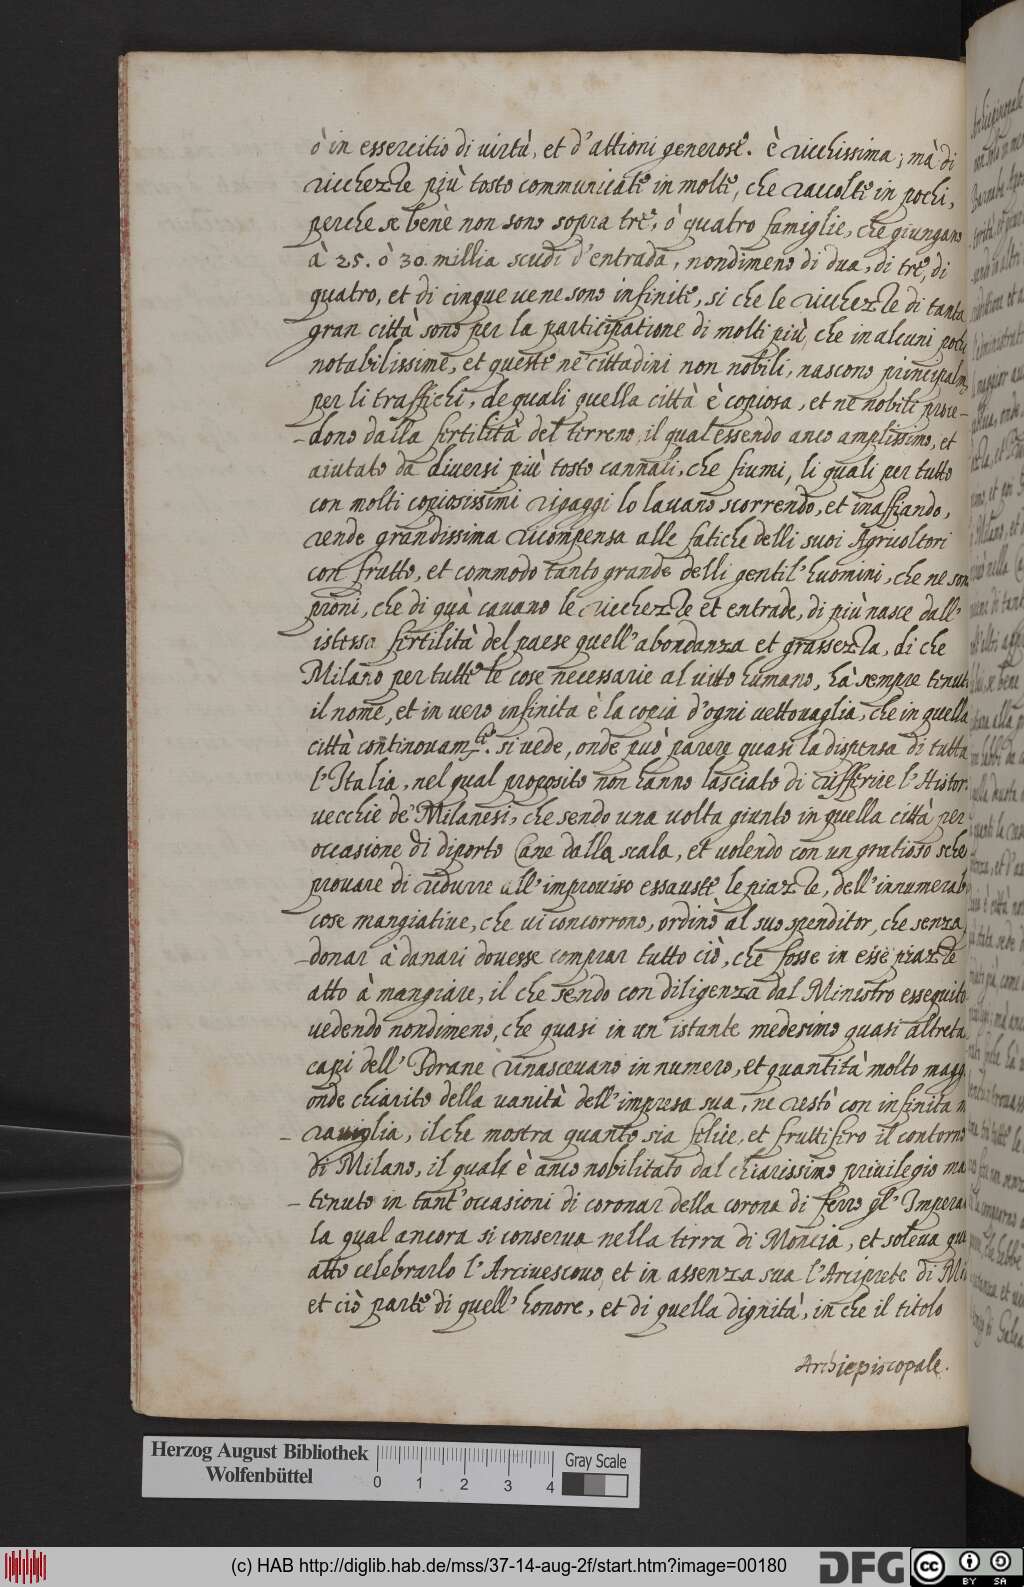 ò in essercitio di virtù, et d'attioni generose. è ricchissima; mà di
ricchezze più tosto communicate in molte, che raccolte in pochi,
perche se bene non sono sopra tre, ò quatro famiglie, che giungano
à 25. ò 30. millia scudi d'entrada, nondimeno di dua, di tre, di
quatro, et di cinque vene sono infinite, si che le ricchezze di tanta
gran città sono per la participatione di molti più, che in alcuni pochi
notabilissime, et queste ne cittadini non nobili, nascono principalm
per li traffichi, de quali quella città è copiosa, et ne nobili proce-
-dono dalla fertilità del terreno, il qual essendo anco amplissimo, et
aiutato da diversi più tosto cannali, che fiumi, li quali per tutto
con molti copiosissimi rigaggi lo lavano scorrendo, et inaffiando,
rende grandissima ricompensa alle fatiche delli suoi Agricoltori
con frutto, et commodo tanto grande delli gentil'huomini, che ne son
proni, che di quà cavano le ricchezze et entrade, di più nasce dall'
istessa fertilità del paese quell'abondanza et grassezza, di che
Milano per tutte le cose necessarie al vitto humano, hà sempre tenuto
il nome, et in vero infinita è la copia d'ogni vettovaglia, che in quella
città continovam.te si vede, onde può parere quasi la dispensa di tutta
l'Italia, nel qual proposito non hanno lasciato di rifferire l'Histor.
vecchie de' Milanesi, che sendo una volta giunto in quella città per
occasione di diporto Cane dalla scala, et volendo con un gratioso sche
provare di ridurre all'improviso essauste le piazze, dell'innumerab
cose mangiative, che vi concorrono, ordinò al suo spenditor, che senza
-donar à danari dovesse comprar tutto ciò, che fosse in esse piazze
atto à mangiare, il che sendo con diligenza dal Ministro essequito
vedendo nondimeno, che quasi in un'istante medesimo quasi altreta
capi dell'Idrane rinascevano in numero, et quantità molto magg
onde chiarito della vanità dell'impresa sua, ne restò con infinita m
-raviglia, il che mostra quanto sia felice, et fruttifero il contorno
di Milano, il quale è anco nobilitato dal chiarissimo privilegio ma
-tenuto in tant'occasioni di coronar della corona di ferro gl'Impera
la qual ancora si conserva nella terra di Moncia, et soleva qua
atto celebrarlo l'Arcivescovo, et in assenza sua l'Arciprete di Mi
et ciò parte di quell'honore, et di quella dignità, in che il titolo
Archiepiscopale.
Herzog August Bibliothek
Wolfenbüttel
0 1 2 3 4
Gray Scale
(c) HAB http://diglib.hab.de/mss/37-14-aug-2f/start.htm?image=00180
DFG
cc BY SA